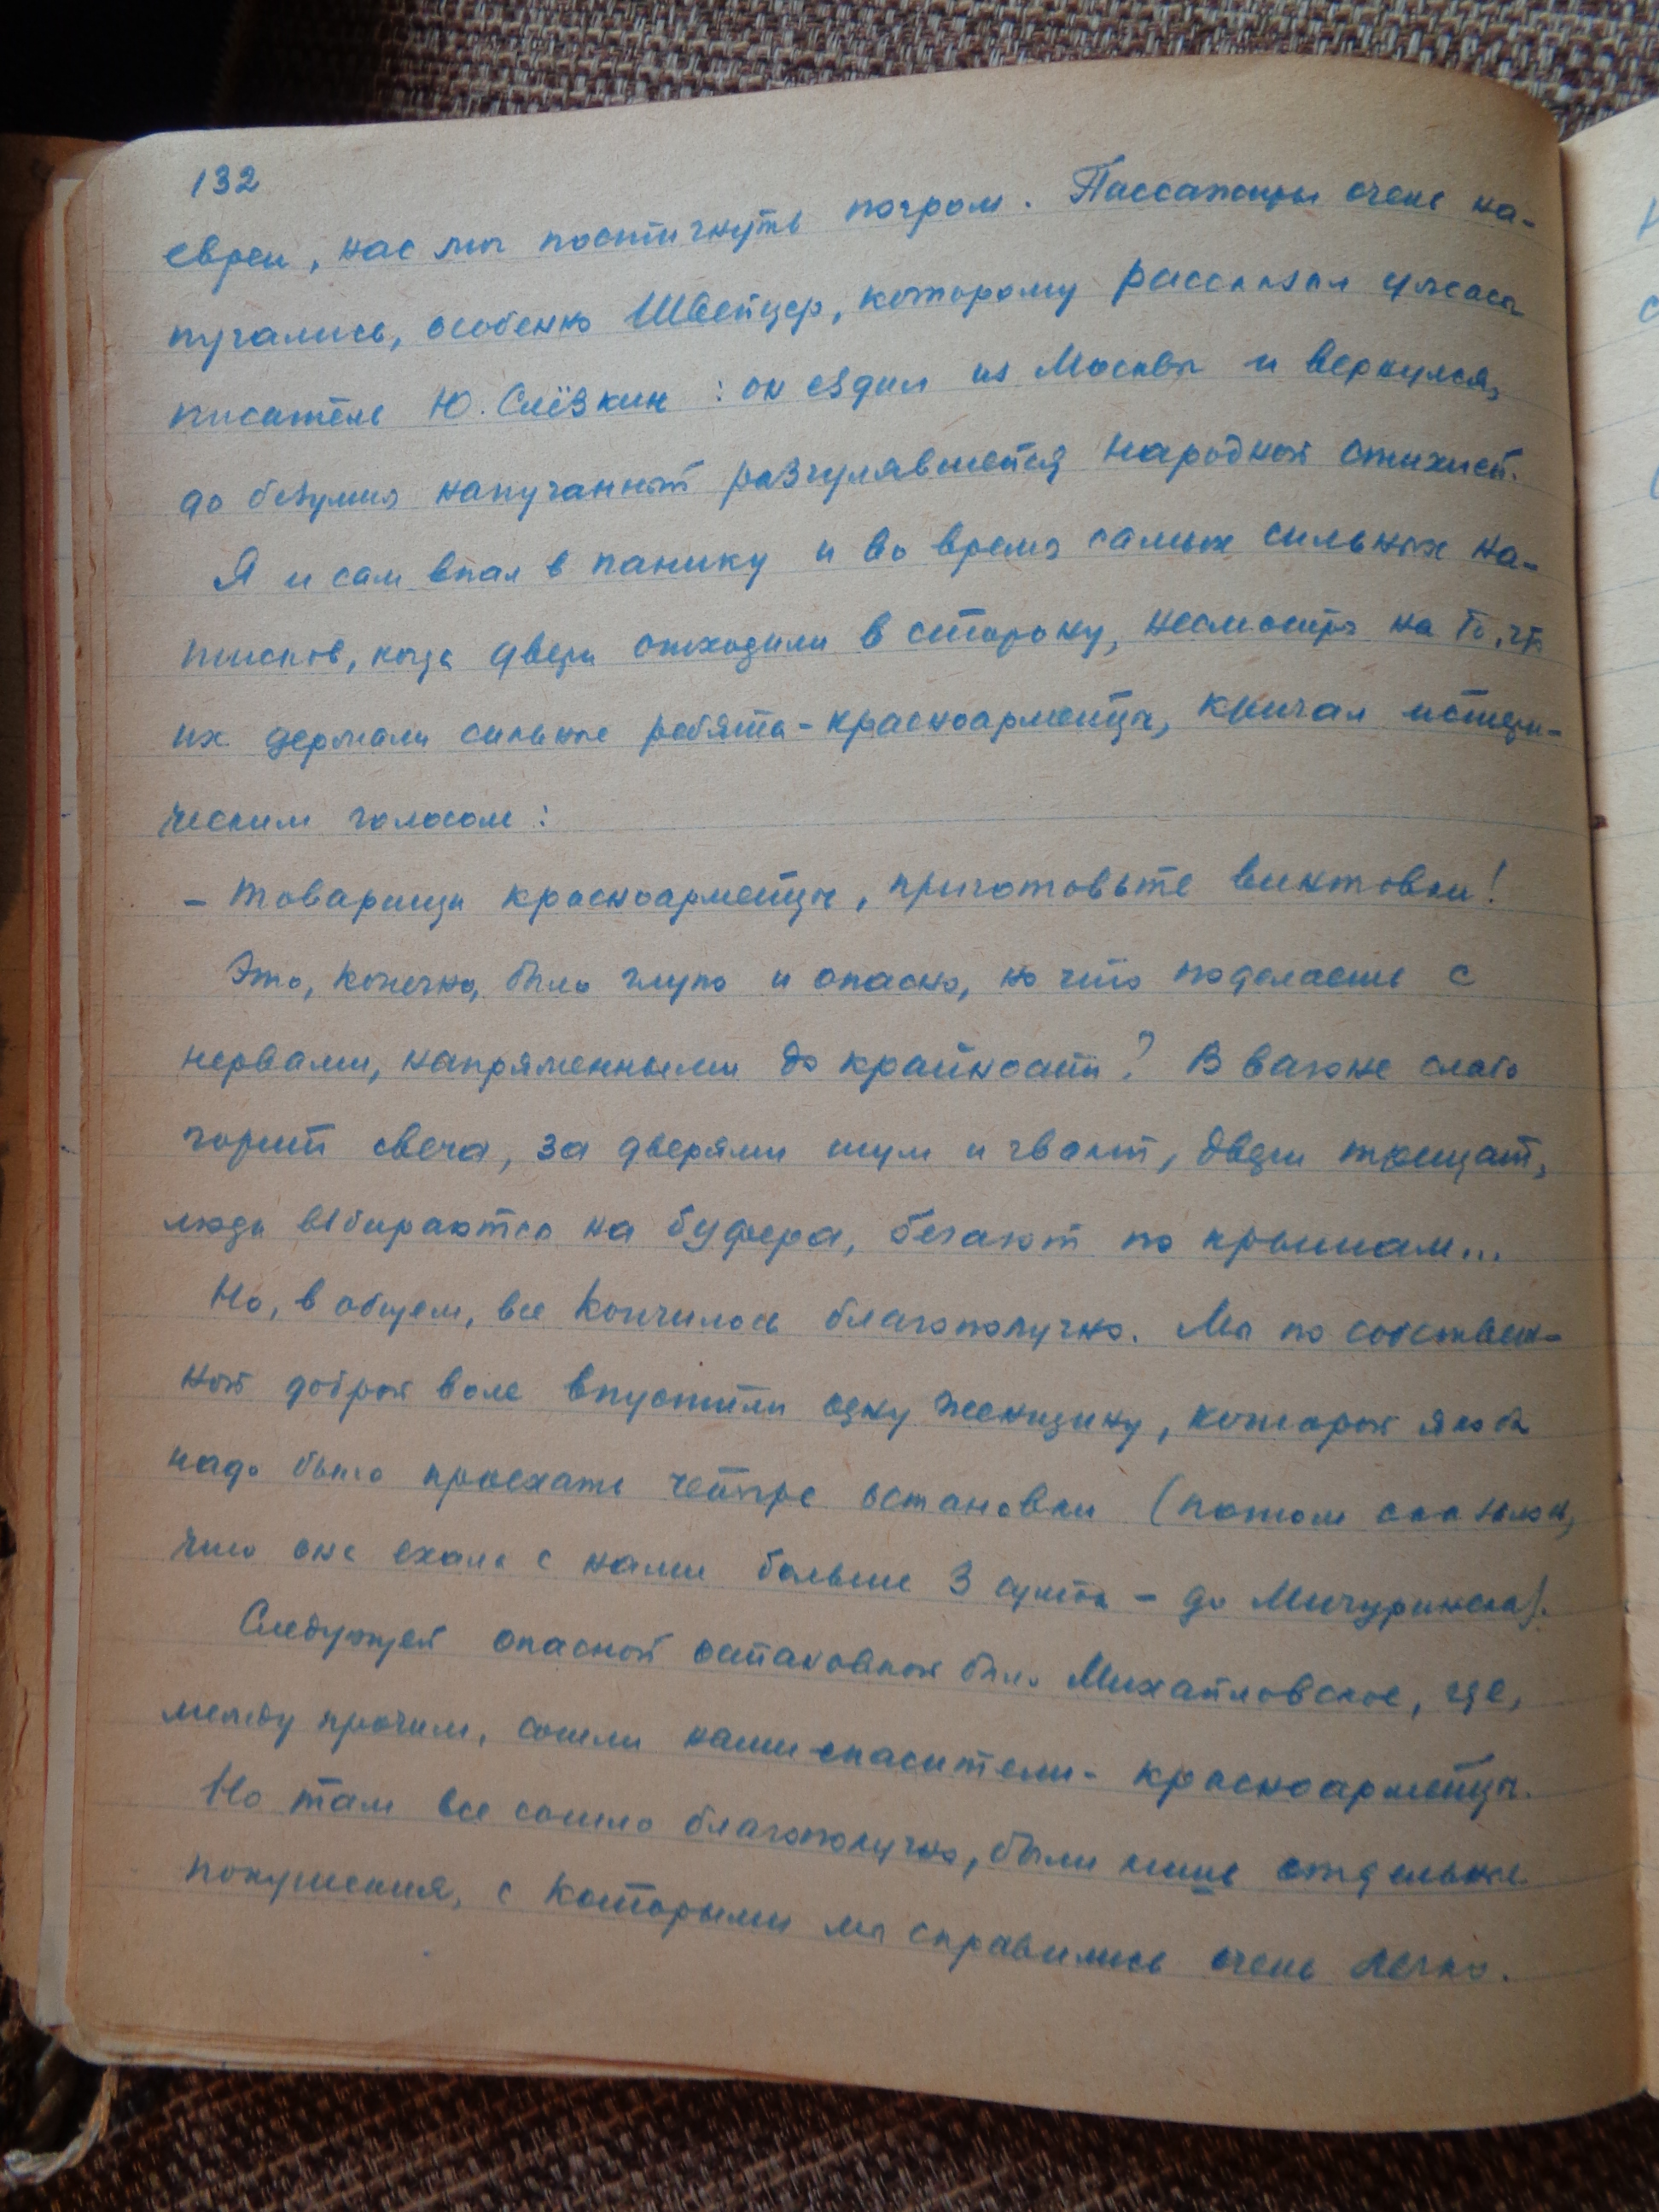 132
евреи, нас мог постигнуть погром. Пассажиры очень на-
пугались, особенно Швейцер, которому рассказал ужасы
писатель Ю. Слёзкин: он ездил из Москвы и вернулся,
до безумия напуганный разгулявшейся народной стихией.
Я и сам впал в панику и во время самых сильных на-
тисков, когда двери отходили в сторону, несмотря на то, что
их держали сильные ребята-красноармейцы, кричал истери-
ческим голосом:
- Товарищи красноармейцы, приготовьте винтовки!
Это, конечно, было глупо и опасно, но что поделаешь с
нервами, напряженными до крайности? В вагоне слабо
горит свеча, за дверями шум и гвалт, двери трещат,
люди взбираются на буфера, бегают по крышам...
Но, в общем, все кончилось благополучно. Мы по собствен-
ной доброй воле впустили одну женщину, которой якобы
надо было проехать четыре остановки (потом оказалось,
что она ехала с нами больше 3 суток - до Мичуринска).
Следующей опасной остановкой было Михайловское, где,
между прочим, сошли наши спасители - красноармейцы.
Но там все сошло благополучно, были лишь отдельные
покушения, с которыми мы справились очень легко.